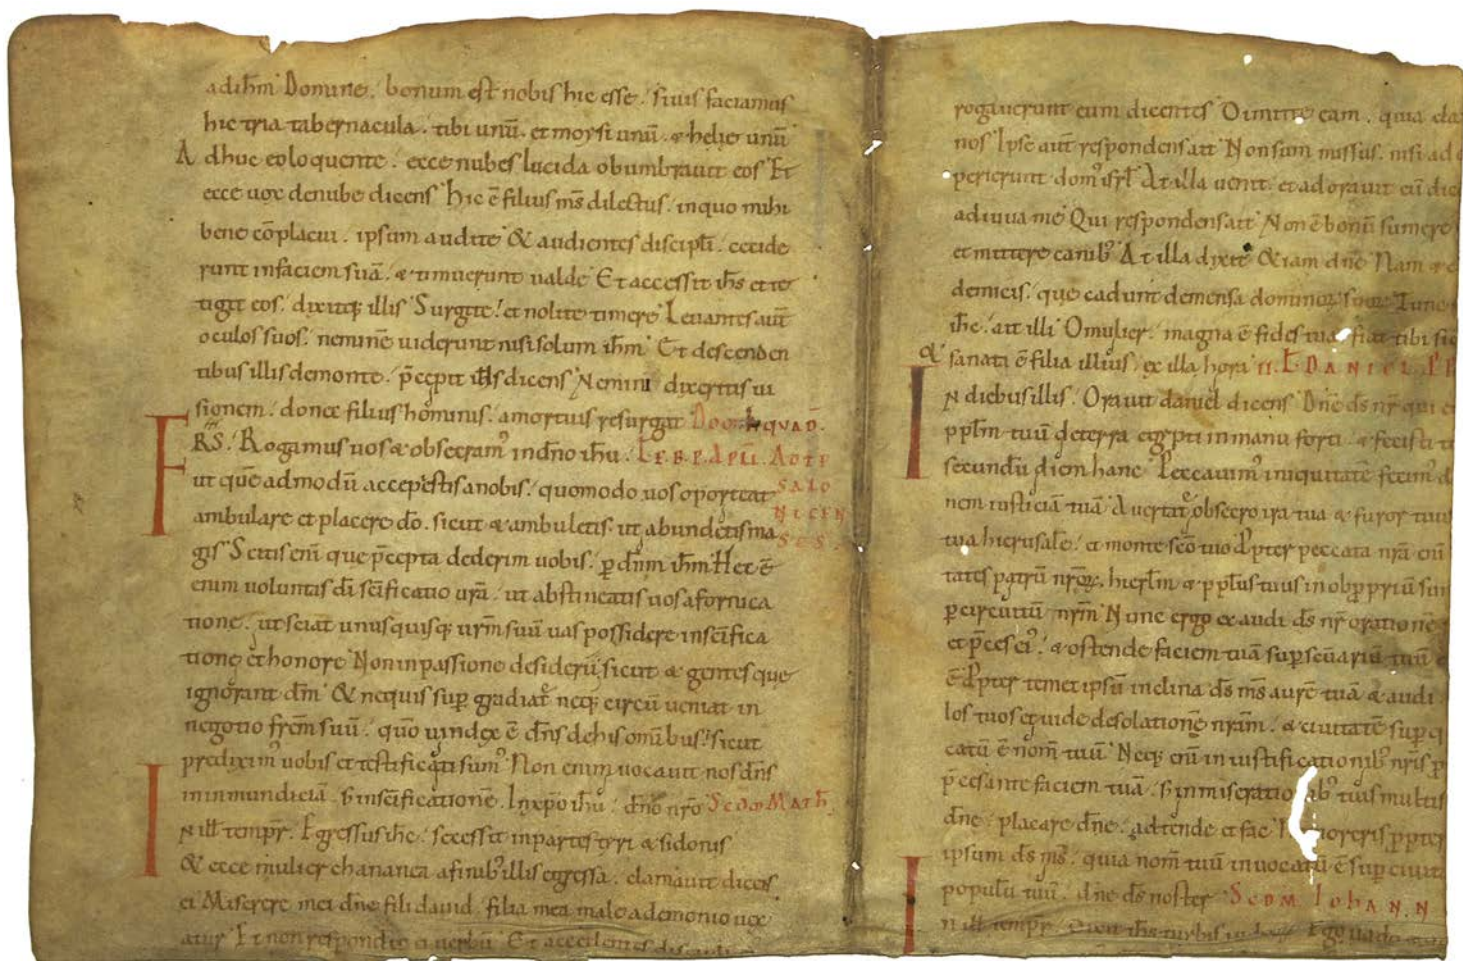 ad ihm̄ Domine. bonum est nobis hic esse. si uis faciamus
hic tria tabernacula. tibi unū. et moysi unū. & helie unū
Adhuc eo loquente. ecce nubes lucida obumbrauit eos Et
ecce uox de nube dicens Hic ē filius ms̄ dilectus. in quo mihi
bene cōplacui. ipsum audite & audientes discipli. cecide
runt in faciem suā. & timuerunt ualde Et accessit ihs et te
tigit eos. dixitq; illis Surgite! et nolite timere Leuantes aut̄
oculos suos. neminē uiderunt nisi solum ihm̄ Et descenden
tibus illis de monte. p̄cepit ihs dicens Nemini dixeritis ui
sionem. donec filius hominis. a mortuis resurgat Dom QVAD.
FRS. Rogamus uos & obsecram᷒ in dn̄o ihū.
ut quē admodū accepistis a nobis. quomodo uos oporteat SALO
ambulare et placere dō. sicut & ambuletis. ut abundetis ma NICEN
gis Scitis enī que p̄cepta dederim uobis. p̱ dn̄m ihm̄ Hec ē SES.
enim uoluntas dī sc̄ificatio ur̄a. ut abstineatis uos a fornica
tione. ut sciat unusquisq; ur̄m suū uas possidere in sc̄ifica
tione et honore Non in passione desiderii, sicut & gentes que
ignorant dm̄ & ne quis sup̱gradiat᷑ neq; circūueniat in
negotio frēm suū. quō uindex ē dn̄s de his omībus. sicut
predixim᷒ uobis et testificati sum᷒ Non enim uocauit nos dn̄s
in inmundiciā. s̄ in sc̄ificationē. In xp̄o ihū. dn̄o nr̄o Scdm Math.
IN ill tempr. Egressus ihc. secessit in partes tyri & sidonis
& ecce mulier chananea a finib᷒ illis egressa. clamauit dicēs
ei Miserere mei dn̄e fili dauid. filia mea male a demonio uex
atur Et non respondit ei uerbū Et accedentes
rogauerunt eum dicentes Dimitte eam. quia cla
nos Ipse aut̄ respondens ait Non sum missus. nisi ad o
perierunt dom᷒ isrl̄ At illa uenit. et adorauit eū dic
adiuua me Qui respondens ait Non ē bonū sumere
et mittere canib᷒ At illa dixit &iam dn̄e Nam &
de micis. que cadunt de mensa dominoꝝ suoꝝ Tunc
ihc. ait illi O mulier. magna ē fides tua. fiat tibi sic
& sanata ē filia illius, ex illa hora II. L DANIEL. PR
IN diebus illis. Orauit daniel dicens Dn̄e ds̄ nr̄ qui e
ppl̄m tuū de terra egypti in manu forti. & fecisti t
secundū diem hanc Peccauim᷒ iniquitatē fecim᷒ d
nem iusticiā tuā Auertat᷑ obsecro ira tua & furor tuus
tua hierusalē. et monte sc̄o tuo Ꝓpter peccata nr̄a enī
tates patrū nr̄oꝝ. hierlm̄ & ppl̄us tuus in obꝓpriū sun
p̱ circuitū nr̄m Nunc ergo exaudi ds̄ nr̄ orationē
et p̄ces ei᷒. & ostende faciem tuā sup̱ sc̄uariū tuū
ē Ꝓpter temet ipsū inclina ds̄ ms̄ aurē tuā & audi
los tuos et uide desolationē nr̄am. & ciuitatē sup̱ q
catū ē nom̄ tuū Neq; enī in iustificationib᷒ nr̄is p
p̄ces ante faciem tuā. s̄ in miseratio ib᷒ tuis multis
dn̄e. placare dn̄e. adtende et fac Ne moreris ꝓpter
ipsum ds̄ ms̄. quia nom̄ tuū inuocatū ē sup̱ ciuita
populū tuū. dn̄e ds̄ noster Scdm. IohANN
IN ill tempr. Dixit ihs turbis Ego uado